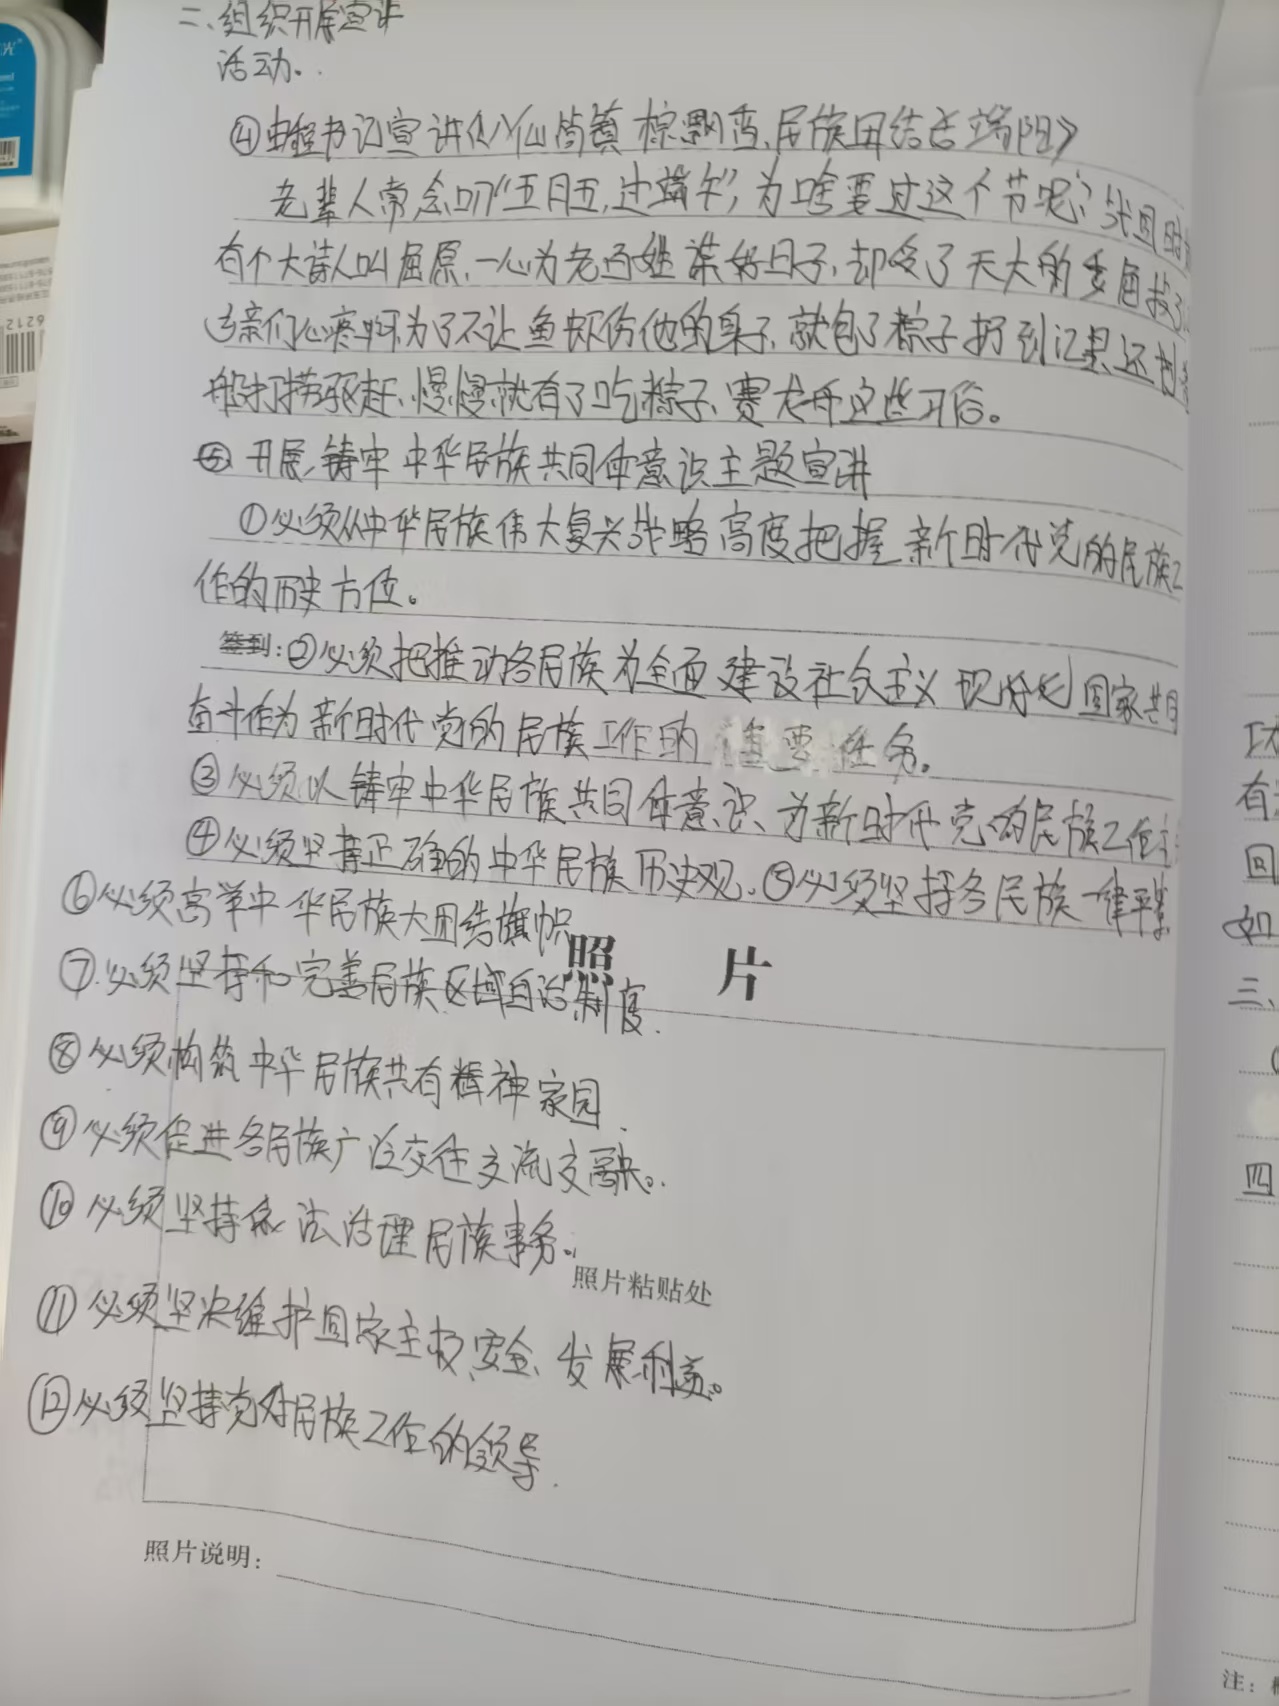 二、组织开展宣讲
活动。
④ 书记宣讲《八仙筒镇 粽飘香、民族团结话端阳》
老辈人常念叨"五月五,过端午",为啥要过这个节呢?战国时
有个大诗人叫屈原,一心为老百姓谋好日子,却受了天大的委屈投了
乡亲们心疼啊,为了不让鱼虾伤他的身子,就包了粽子扔到江里还划
船打捞驱赶、慢慢就有了吃粽子、赛龙舟这些习俗。
⑤ 开展、铸牢中华民族共同体意识主题宣讲
①必须从中华民族伟大复兴战略高度把握新时代党的民族工
作的历史方位。
签到:②必须把推动各民族为全面建设社会主义现代化国家共同
奋斗作为新时代党的民族工作的重要任务。
③必须以铸牢中华民族共同体意识、为新时代党的民族工作主
④必须坚持正确的中华民族历史观、⑤必须坚持各民族一律平等
⑥必须高举中华民族大团结旗帜
照 片
⑦.必须坚持和完善民族区域自治制度.
⑧必须构筑中华民族共有精神家园.
⑨必须促进各民族广泛交往交流交融。.
⑩必须坚持依法治理民族事务。
照片粘贴处
⑪必须坚决维护国家主权、安全、发展利益。
⑫必须坚持党对民族工作的领导.
照片说明:
有
回
如
三、
四
注: